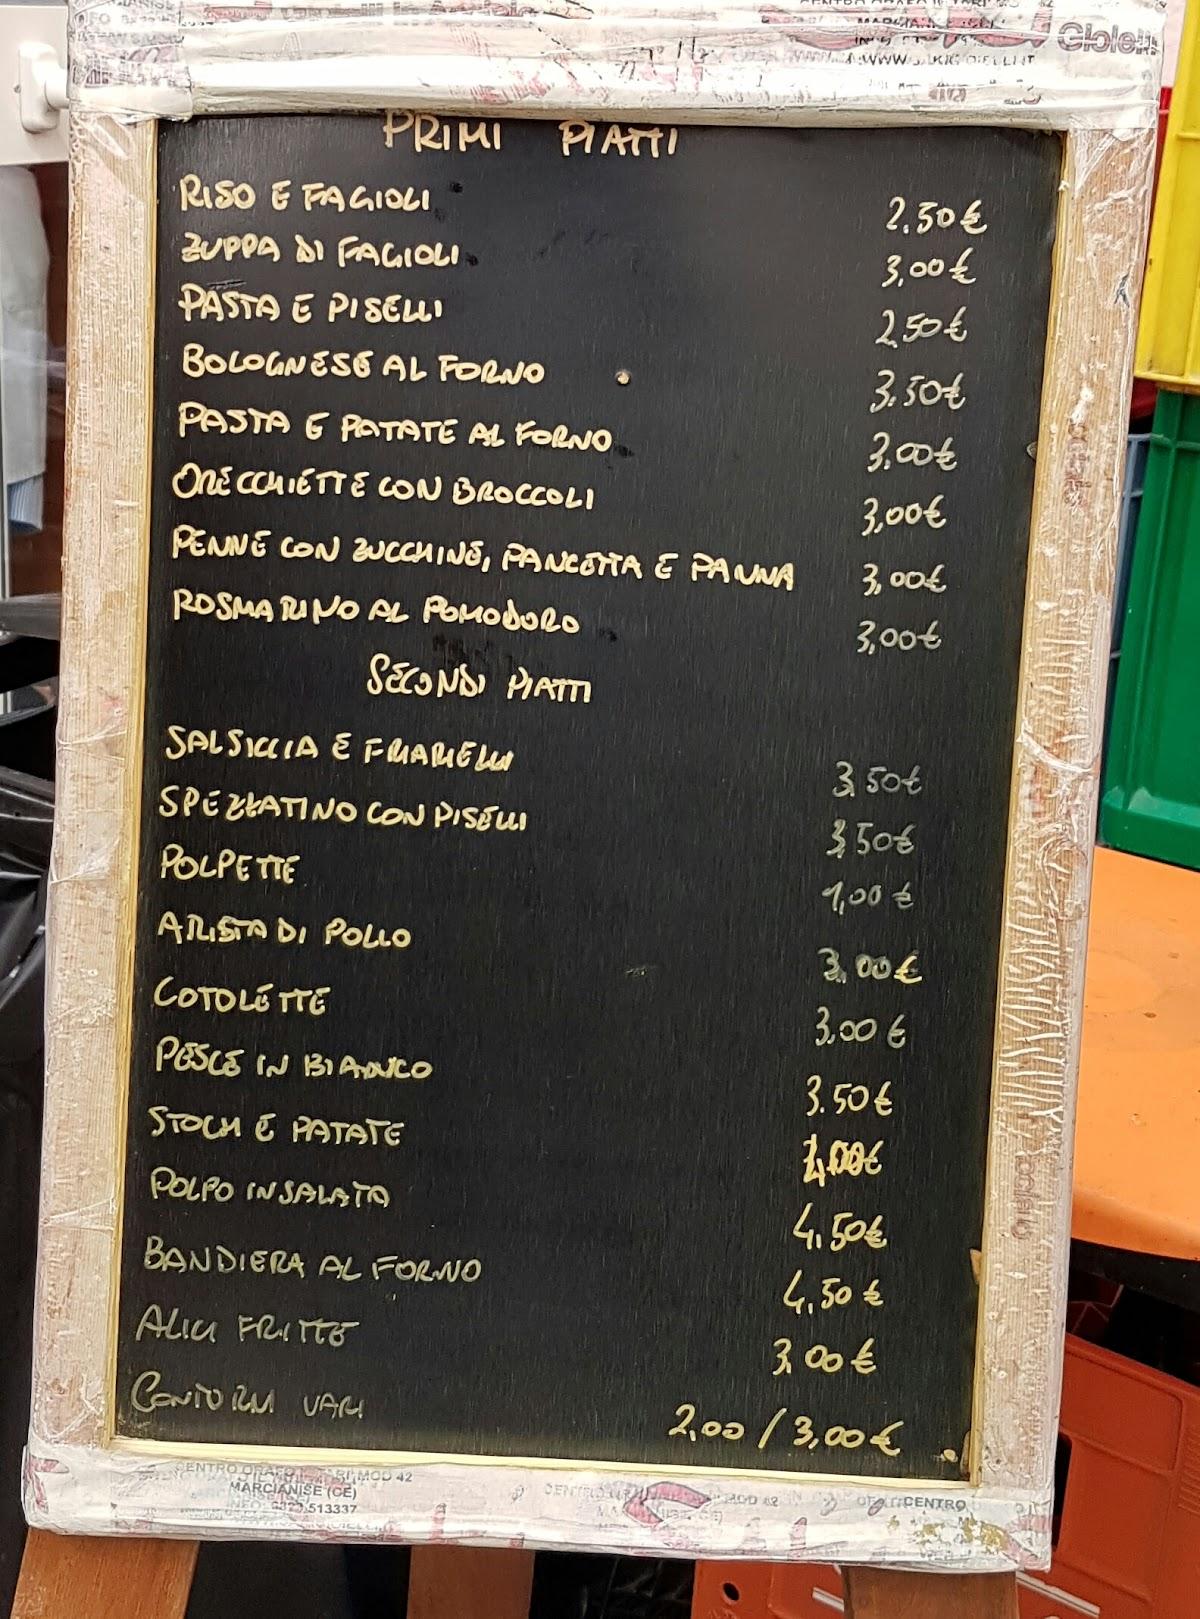 Gioielli
PRIMI PIATTI
RISO E FAGIOLI 2.50€
ZUPPA DI FAGIOLI 3,00€
PASTA E PISELLI 2,50€
BOLOGNESE AL FORNO 3.50€
PASTA E PATATE AL FORNO 3,00€
ORECCHIETTE CON BROCCOLI 3,00€
PENNE CON ZUCCHINE, PANCETTA E PANNA 3,00€
ROSMARINO AL POMODORO 3,00€
SECONDI PIATTI
SALSICCIA E FRIARIELLI 3.50€
SPEZZATINO CON PISELLI 3,50€
POLPETTE 1,00 €
ARISTA DI POLLO 3.00€
COTOLETTE 3.00 €
PESCE IN BIANCO 3.50€
STOCH E PATATE
POLPO INSALATA 4.50€
BANDIERA AL FORNO 4,50 €
ALICI FRITTE 3,00€
CONTORNI VARI 2,00 / 3,00€
MARCIANISE (CE)
CENTRO